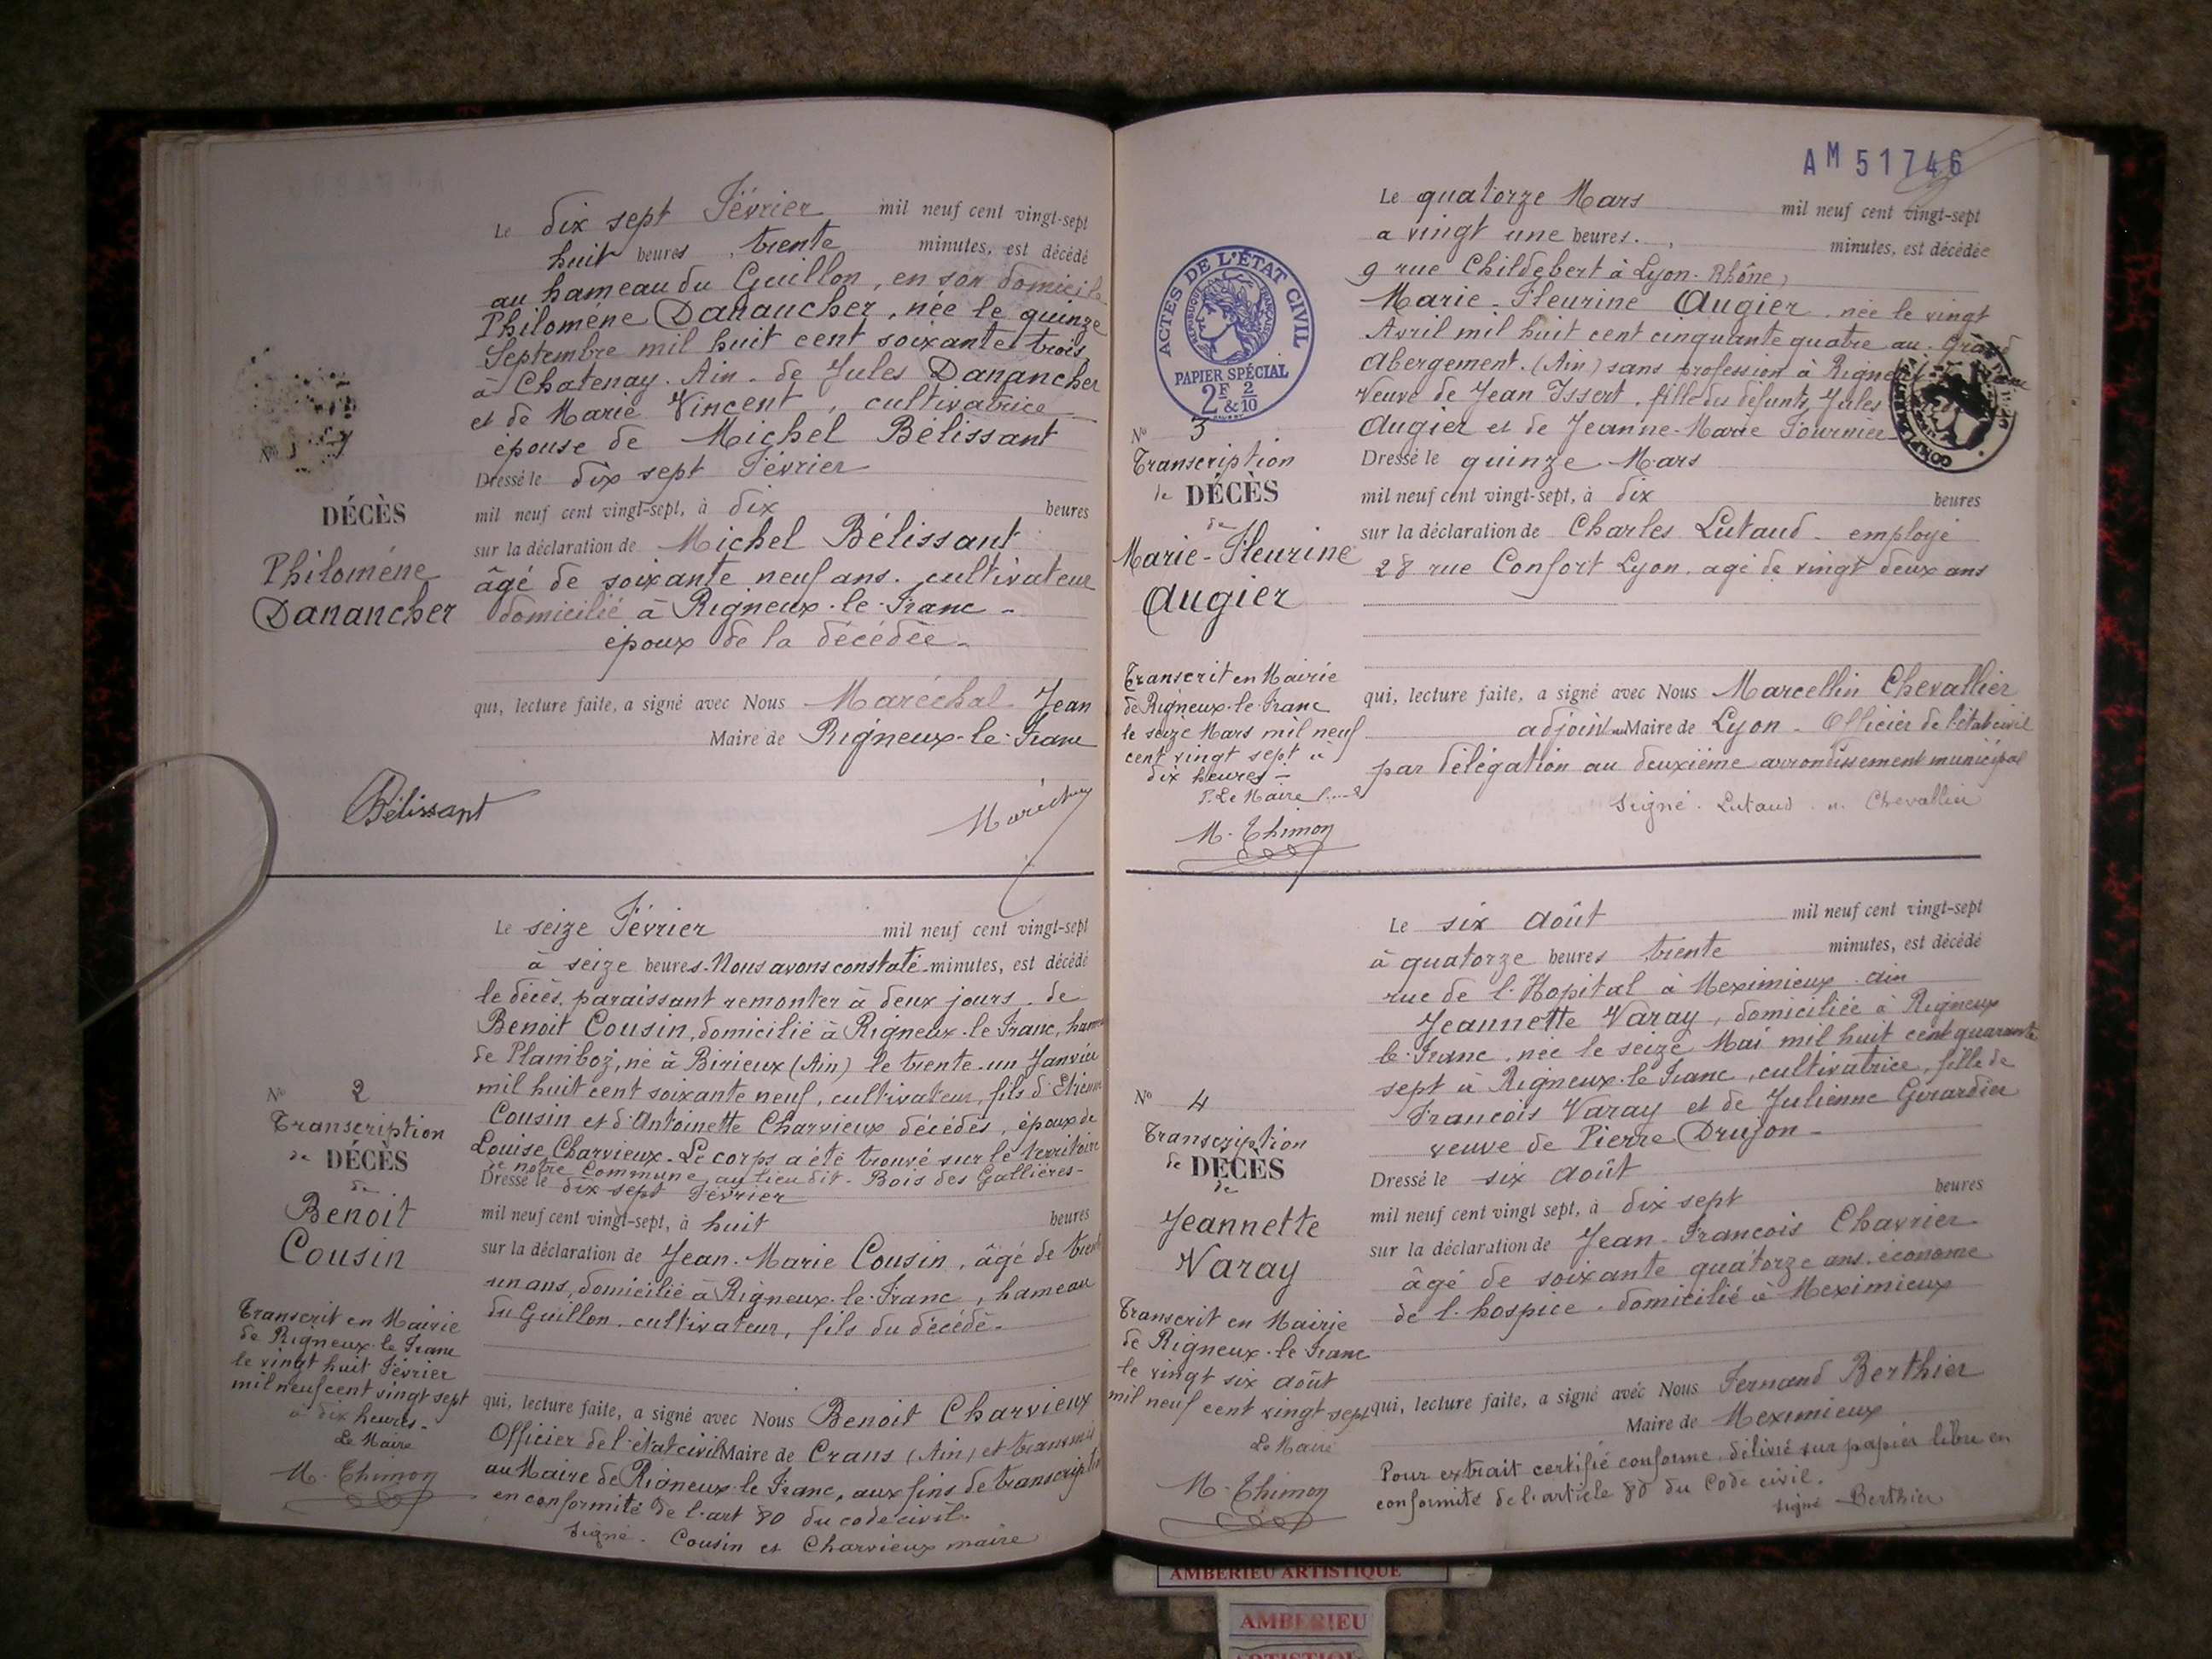 Le dix sept Février mil neuf cent vingt-sept
huit heures, trente minutes, est décédé
au hameau du Guillon, en son domicile
Philomène Danancher, née le quinze
Septembre mil huit cent soixante trois
à Chatenay. Ain. de Jules Danancher
et de Marie Vincent, cultivatrice
épouse de Michel Bélissant
Dressé le dix sept Février
mil neuf cent vingt-sept, à dix heures
sur la déclaration de Michel Bélissant
âgé de soixante neuf ans. cultivateur
domicilié à Rigneux-le-Franc -
époux de la décédée.
qui, lecture faite, a signé avec Nous Maréchal Jean
Maire de Rigneux-le-Franc
No 1
DÉCÈS
Philoméne
Danancher
Bélissant
Maréchal
Le seize Février mil neuf cent vingt-sept
à seize heures. Nous avons constaté minutes, est décédé
le décès, paraissant remonter à deux jours. de
Benoit Cousin, domicilié à Rigneux-le-Franc, hameau
de Plamboz, né à Birieux (Ain) le trente-un Janvier
mil huit cent soixante neuf, cultivateur, fils d'Etienne
Cousin et d'Antoinette Charvieux décédés, époux de
Louise Charvieux. Le corps a été trouvé sur le territoire
de notre Commune, au lieu dit. Bois des Gallières-
Dressé le dix sept Février
mil neuf cent vingt-sept, à huit heures
sur la déclaration de Jean-Marie Cousin, âgé de trente
un ans, domicilié à Rigneux-le-Franc, hameau
du Guillon. cultivateur, fils du décédé.
qui, lecture faite, a signé avec Nous Benoit Charvieux
Officier de l'état civil Maire de Crans (Ain) et transmis
au Maire de Rigneux-le-Franc, aux fins de transcription
en conformité de l'art 80 du code civil.
signé. Cousin et Charvieux maire
No 2
Transcription
de DÉCÈS
de
Benoit
Cousin
Transcrit en Mairie
de Rigneux-le-Franc
le vingt huit Février
mil neuf cent vingt sept
à dix heures-
Le Maire
M. Thimon
AM 51746
Le quatorze Mars mil neuf cent vingt-sept
a vingt une heures. minutes, est décédée
9 rue Childebert à Lyon. Rhône,
Marie-Fleurine Augier. née le vingt
Avril mil huit cent cinquante quatre au Grand
Abergement. (Ain) sans profession à
Veuve de Jean Issert. fille des défunts Jules
Augier et de Jeanne-Marie Fournier
Dressé le quinze Mars
mil neuf cent vingt-sept, à dix heures
sur la déclaration de Charles Lutaud - employé
28 rue Confort Lyon. agé de vingt deux ans
qui, lecture faite, a signé avec Nous Marcellin Chevallier
adjoint au Maire de Lyon - Officier de l'état civil
par délégation au deuxième arrondissement municipal
signé. Lutaud. Chevallier
ACTES DE L'ÉTAT CIVIL
RÉPUBLIQUE FRANÇAISE
PAPIER SPÉCIAL
2F & 2/10
No 3
Transcription
de DÉCÈS
de
Marie-Fleurine
Augier
Transcrit en Mairie
de Rigneux-le-Franc
le seize Mars mil neuf
cent vingt sept à
dix heures -
P. Le Maire
M. Thimon
Le six Août mil neuf cent vingt-sept
à quatorze heures trente minutes, est décédé
rue de l'Hopital à Meximieux. Ain
Jeannette Varay, domiciliée à Rigneux
le-Franc. née le seize Mai mil huit cent quarante
sept à Rigneux-le-Franc, cultivatrice, fille de
François Varay et de Julienne Girardier
veuve de Pierre Drujon -
Dressé le six Août
mil neuf cent vingt sept, à dix sept heures
sur la déclaration de Jean-François Chavrier
âgé de soixante quatorze ans. économe
de l'hospice. domicilié à Meximieux
qui, lecture faite, a signé avec Nous Fernand Berthier
Maire de Meximieux
Pour extrait certifié conforme, délivré sur papier libre en
conformité de l'article 80 du Code civil.
signé Berthier
No 4
Transcription
de DÉCÈS
de
Jeannette
Varay
Transcrit en Mairie
de Rigneux-le-Franc
le vingt six Août
mil neuf cent vingt sept
Le Maire
M. Thimon
AMBERIEU ARTISTIQUE
AMBERIEU
ARTISTIQUE